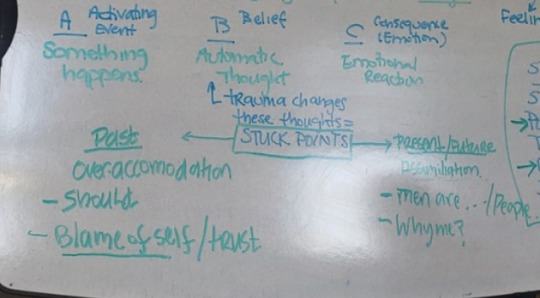 A Activating
Event
Something
happens
B Belief
Automatic
Thought
trauma changes
these thoughts=
STUCK POINTS
C Consequence
(Emotion)
Emotional
Reaction
Past
over-accomodation
- Should
- Blame of self/trust
Present/Future
assimilation
- Men are.../People
- Why me?